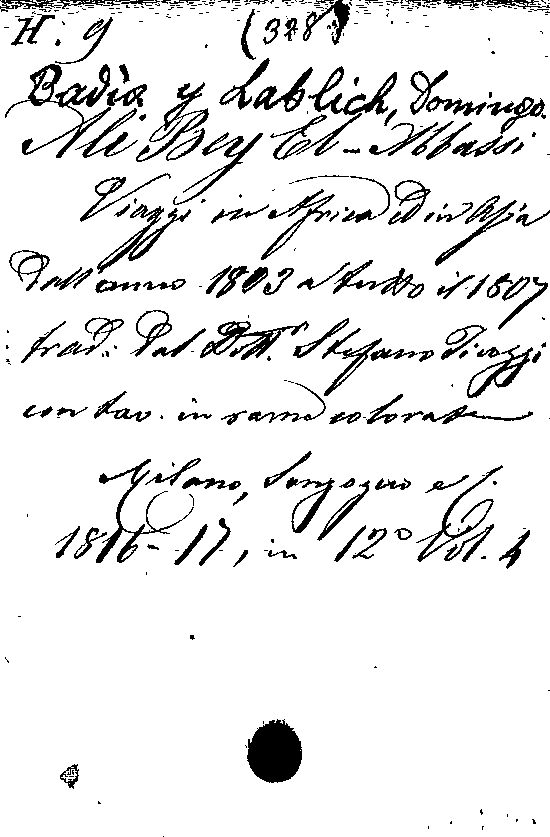 H. 9 (328)
Badia y Lablich, Domingo.
Ali Bey El-Abbassi
Viaggi in Africa ed in Asia
Dall'anno 1803 a tutto il 1807
trad. dal Dott.r Stefano Ticozzi
con tav. in rame colorate
Milano, Sonzogno e C.
1816-17, in 12° Vol. 4